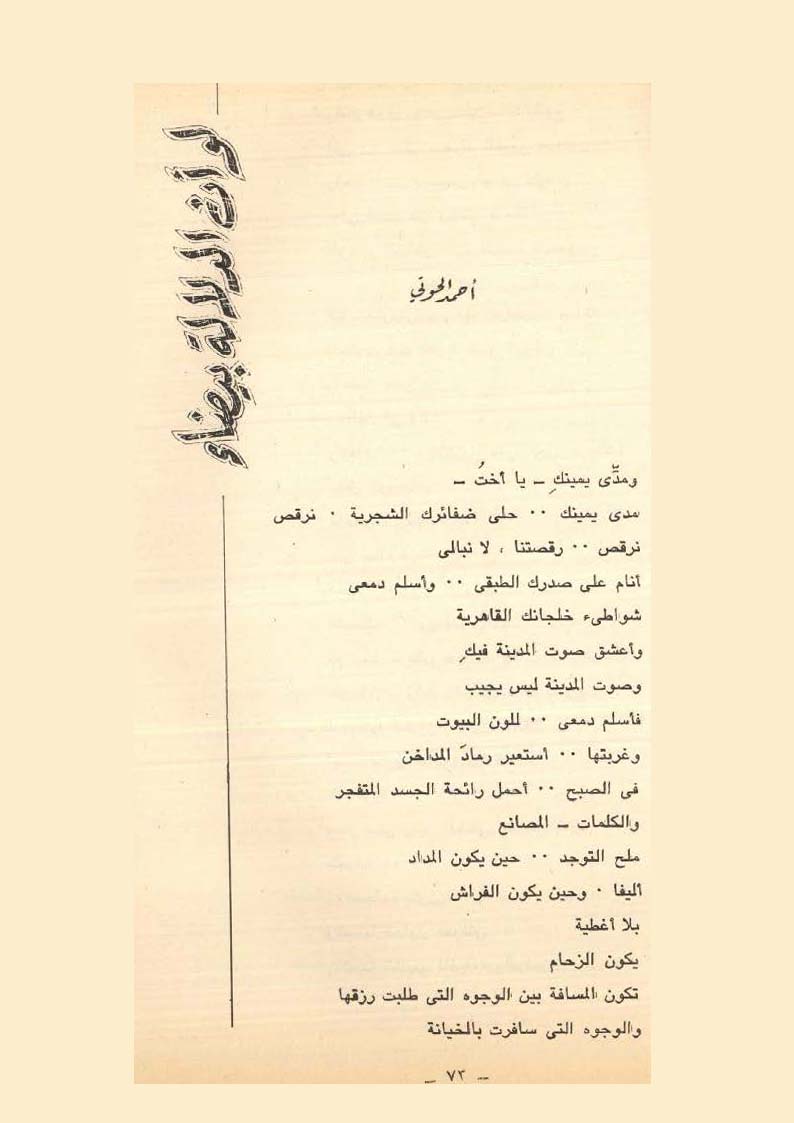 لو أن الدلالة بيضاء
أحمد الحوتي
ومدِّى يمينكِ ــ يا أختُ ــ
مدى يمينك ٠٠ حلى ضفائرك الشجرية ٠ نرقص
نرقص ٠٠ رقصتنا ، لا نبالى
أنام على صدرك الطبقى ٠٠ وأسلم دمعى
شواطىء خلجانك القاهرية
وأعشق صوت المدينة فيكِ
وصوت المدينة ليس يجيب
فأسلم دمعى ٠٠ للون البيوت
وغربتها ٠٠ أستعير رمادَ المداخن
فى الصبح ٠٠ أحمل رائحة الجسد المتفجر
والكلمات ــ المصانع
ملح التوجد ٠٠ حين يكون المداد
أليفا ٠ وحين يكون الفراش
بلا أغطية
يكون الزحام
تكون المسافة بين الوجوه التى طلبت رزقها
والوجوه التى سافرت بالخيانة
ــ ٧٣ ــ